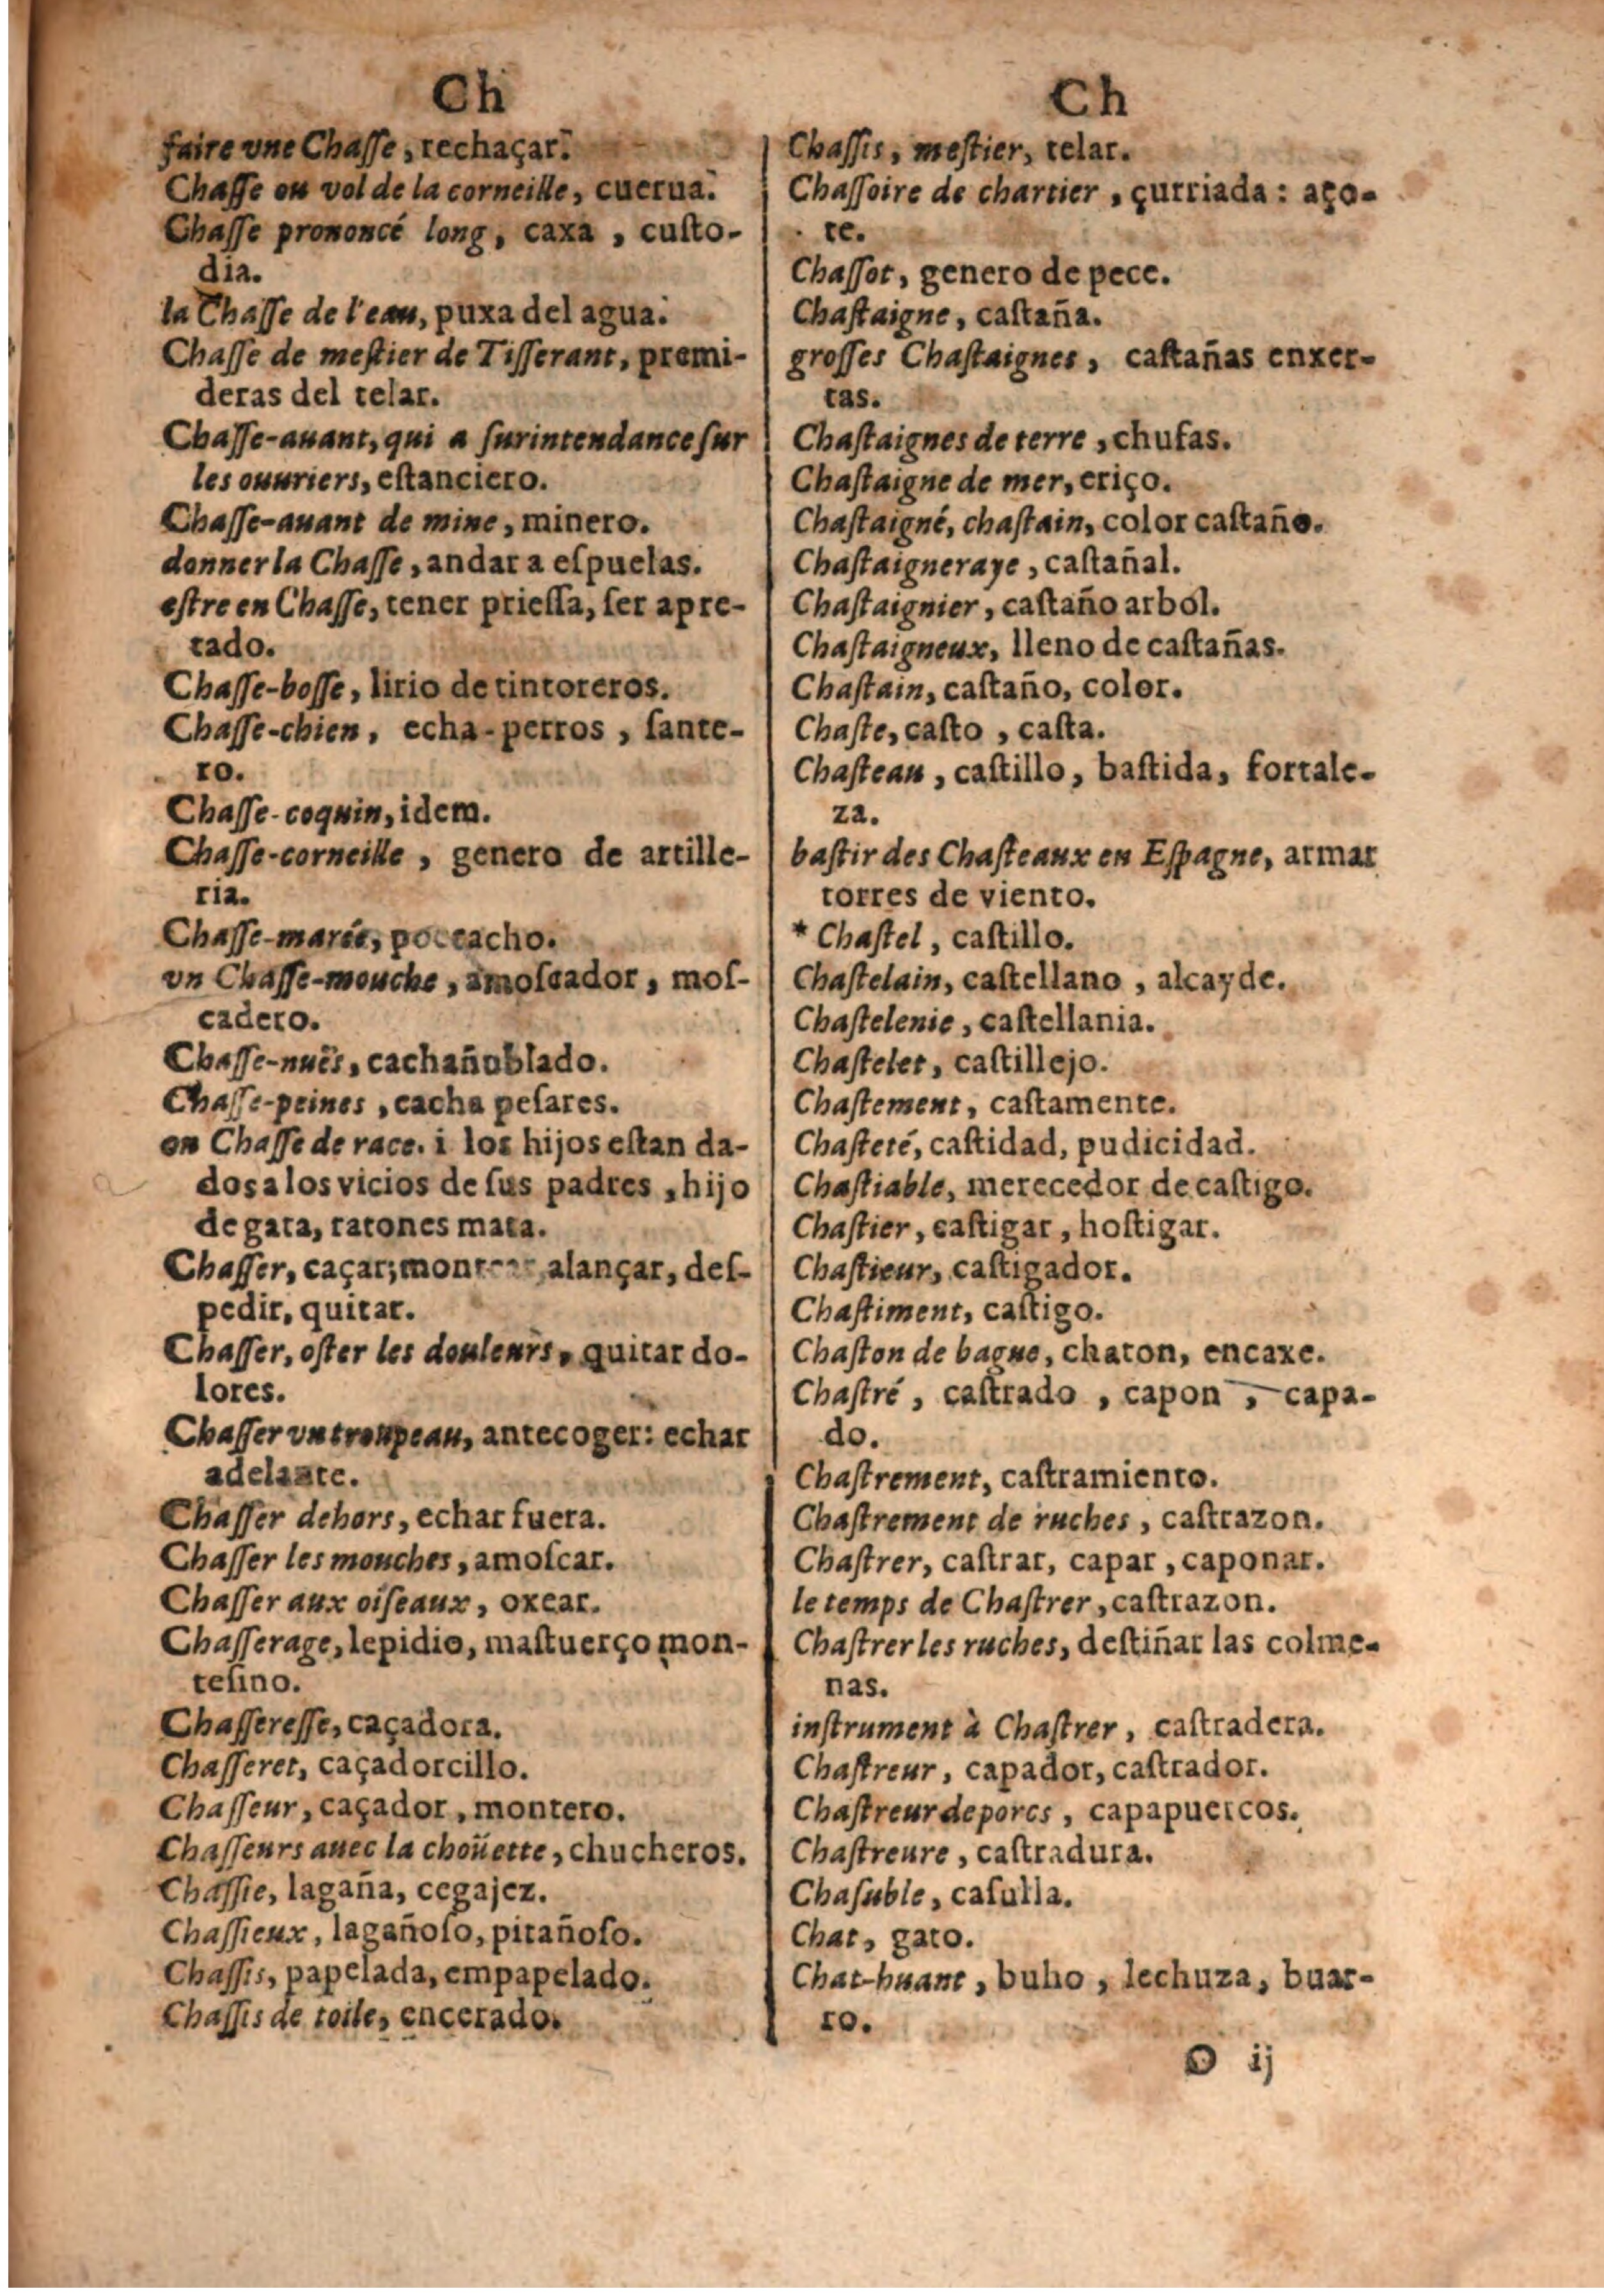 Ch
faire vne Chaſſe, rechaçar.
Chaſſe ou vol de la corneille, cuerua.
Chaſſe prononcé long, caxa, cuſto-
dia.
la Chaſſe de l'eau, puxa del agua.
Chaſſe de meſtier de Tiſſerant, premi-
deras del telar.
Chaſſe-auant, qui a ſurintendance ſur
les ouuriers, eſtanciero.
Chaſſe-auant de mine, minero.
donner la Chaſſe, andar a eſpuelas.
eſtre en Chaſſe, tener prieſſa, ſer apre-
tado.
Chaſſe-boſſe, lirio de tintoreros.
Chaſſe-chien, echa-perros, ſante-
ro.
Chaſſe-coquin, idem.
Chaſſe-corneille, genero de artille-
ria.
Chaſſe-marée,
vn Chaſſe-mouche, amoſcador, moſ-
cadero.
Chaſſe-nuës, cachañublado.
Chaſſe-peines, cacha peſares.
on Chaſſe de race. i los hijos eſtan da-
dos a los vicios de ſus padres, hijo
de gata, ratones mata.
Chaſſer, caçar, alançar, deſ-
pedir, quitar.
Chaſſer, oſter les douleurs, quitar do-
lores.
Chaſſer vn troupeau, antecoger: echar
adelante.
Chaſſer dehors, echar fuera.
Chaſſer les mouches, amoſcar.
Chaſſer aux oiſeaux, oxear.
Chaſſerage, lepidio, maſtuerço mon-
teſino.
Chaſſereſſe, caçadora.
Chaſſeret, caçadorcillo.
Chaſſeur, caçador, montero.
Chaſſeurs auec la choüette, chucheros.
Chaſſie, lagaña, cegajez.
Chaſſieux, lagañoſo, pitañoſo.
Chaſſis, papelada, empapelado.
Chaſſis de toile, encerado.
Ch
Chaſſis, meſtier, telar.
Chaſſoire de chartier, çurriada: aço-
te.
Chaſſot, genero de pece.
Chaſtaigne, caſtaña.
groſſes Chaſtaignes, caſtañas enxer-
tas.
Chaſtaignes de terre, chufas.
Chaſtaigne de mer, eriço.
Chaſtaigné, chaſtain, color caſtaño.
Chaſtaigneraye, caſtañal.
Chaſtaignier, caſtaño arbol.
Chaſtaigneux, lleno de caſtañas.
Chaſtain, caſtaño, color.
Chaſte, caſto, caſta.
Chaſteau, caſtillo, baſtida, fortale-
za.
baſtir des Chaſteaux en Eſpagne, armar
torres de viento.
* Chaſtel, caſtillo.
Chaſtelain, caſtellano, alcayde.
Chaſtelenie, caſtellania.
Chaſtelet, caſtillejo.
Chaſtement, caſtamente.
Chaſteté, caſtidad, pudicidad.
Chaſtiable, merecedor de caſtigo.
Chaſtier, caſtigar, hoſtigar.
Chaſtieur, caſtigador.
Chaſtiment, caſtigo.
Chaſton de bague, chaton, encaxe.
Chaſtré, caſtrado, capon, capa-
do.
Chaſtrement, caſtramiento.
Chaſtrement de ruches, caſtrazon.
Chaſtrer, caſtrar, capar, caponar.
le temps de Chaſtrer, caſtrazon.
Chaſtrer les ruches, deſtiñar las colme-
nas.
inſtrument à Chaſtrer, caſtradera.
Chaſtreur, capador, caſtrador.
Chaſtreur de porcs, capapuercos.
Chaſtreure, caſtradura.
Chaſuble, caſulla.
Chat, gato.
Chat-huant, buho, lechuza, buar-
ro.
O ij